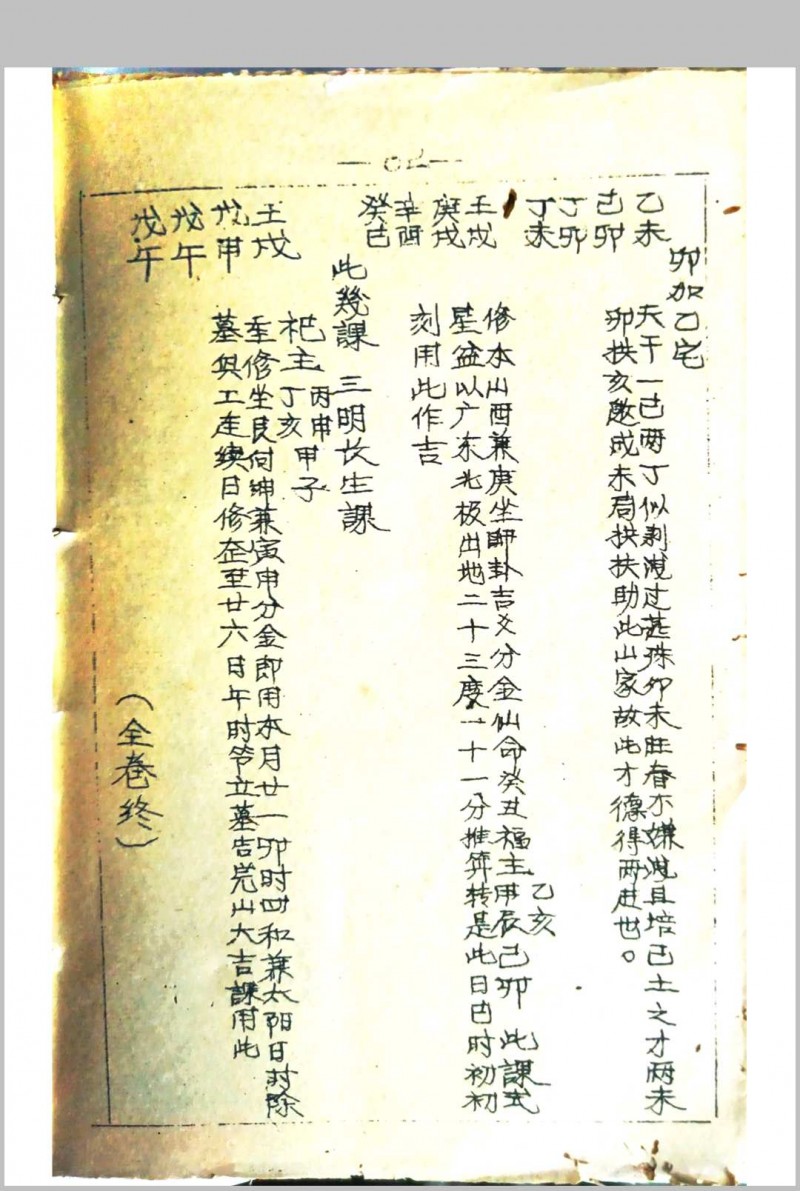 卯加乙宅
乙未
己卯
丁卯
丁未
天干一己两丁似剥洩过甚殊卯未旺春亦嫌洩且培己土之才两未
卯扶亥邀成未局拱扶助此山家故此才德得两进也。
壬戌
庚戌
辛酉
癸巳
修本山酉兼庚坐師卦吉爻分金仙命癸丑福主甲辰己卯乙亥 此課式
星盆以广东北极出地二十三度一十一分推算转是此日巳时初初
刻用此作吉
此幾課 三明长生課
壬戌
戊申
戊午
戊午
祀主丁亥丙申甲子
至修坐艮向坤兼寅申分金即用本月廿一卯时四和兼太阳日时除
墓與工连续日修在至廿六日午时竖立墓吉完山大吉課用此
（全卷终）